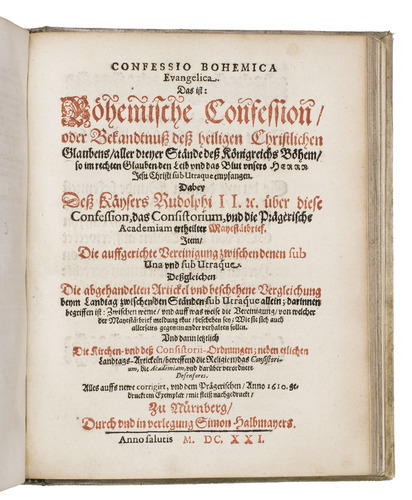 CONFESSIO BOHEMICA
Evangelica.
Das ist:
Böhemische Confession/
oder Bekandtnuß deß heiligen Christlichen
Glaubens/aller dreyer Stände deß Königreichs Böhem/
so im rechten Glauben den Leib vnd das Blut vnsers HERRN
Jesu Christi sub Utraque empfangen.
Dabey
Deß Käysers Rudolphi II. ꝛc. über diese
Confession, das Consistorium, vnd die Prägerische
Academiam ertheilter Mayestätbrief.
Item/
Die auffgerichte Vereinigung zwischen denen sub
Una vnd sub Utraque.
Deßgleichen
Die abgehandelten Artickel vnd beschehene Vergleichung
beym Landtag zwischen den Ständen sub Utraque allein; darinnen
begriffen ist: Zwischen weme/ vnd auff was weise die Vereinigung/ von welcher
der Mayestätbrief meldung thut/ beschehen sey/ Wie sie sich auch
allerseits gegen einander verhalten sollen.
Vnd dann letzlich
Die Kirchen-vnd deß Consistorii-Ordnungen; neben etlichen
Landtags-Artickeln/betreffend die Religion/das Consistori-
um, die Academiam, vnd darüber verordnete
Defensores.
Alles auffs newe corrigirt, vnd dem Prägerischen/ Anno 1610. ge-
drucktem Exemplar/ mit fleiß nachgedruckt/
Zu Nürnberg/
Durch vnd in verlegung Simon Halbmayers.
Anno salutis M. DC. XXI.